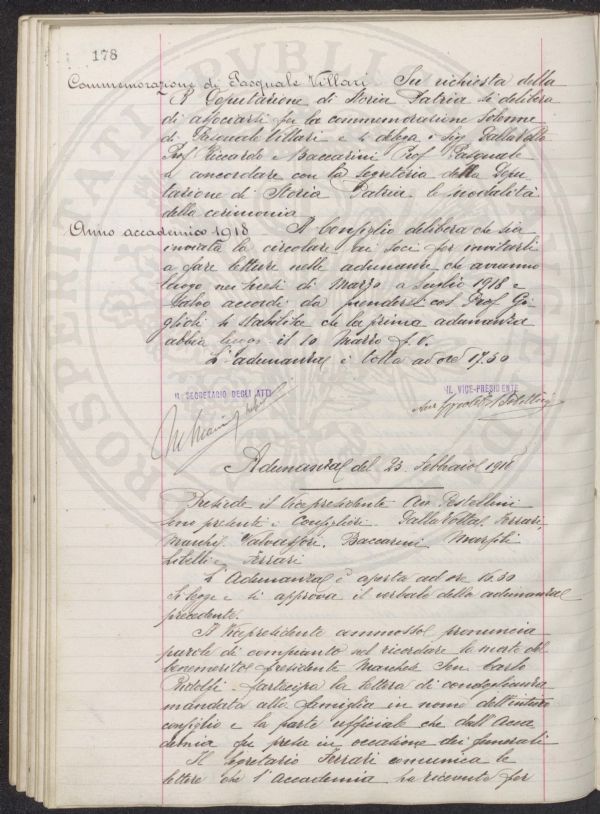 178
Commemorazione di Pasquale Villari Su richiesta della
R. Deputazione di Storia Patria si delibera
di associarsi per la commemorazione solenne
di Pasquale Villari e si delega i sig. Dalla Volta
Prof. Riccardo e Baccarini Prof. Pasquale
a concordare con la Segreteria della Depu
tazione di Storia Patria le modalità
della cerimonia
Anno accademico 1918 Il Consiglio delibera che sia
inviata la circolare ai soci per invitarli
a fare letture nelle adunanze che avranno
luogo nei mesi di Marzo a Luglio 1918 e
salvo accordi da prendersi col Prof. Gi
glioli si stabilisce che la prima adunanza
abbia luogo il 10 Marzo
L'adunanza è tolta ad ore 17.30
IL SEGRETARIO DEGLI ATTI
IL VICE-PRESIDENTE
Adunanza del 23 Febbraio 1918
Presiede il Vicepresidente Avv. Pestellini
Sono presenti i Consiglieri Dalla Volta, Ferrari,
Marchi, Valvassori, Baccarini, Marsili
e Ferrari
L'Adunanza è aperta ad ore 16.30
Si legge e si approva il verbale della adunanza
precedente.
Il Vicepresidente commosso pronuncia
parole di compianto nel ricordare la morte del
benemerito presidente Marchese Sen. Carlo
Ridolfi partecipa la lettera di condoglianza
mandata alla famiglia in nome dell'intero
consiglio e la parte ufficiale che dall'Acca
demia fu presa in occasione dei funerali
Il Segretario Ferrari comunica le
lettere che l'Accademia ha ricevute per